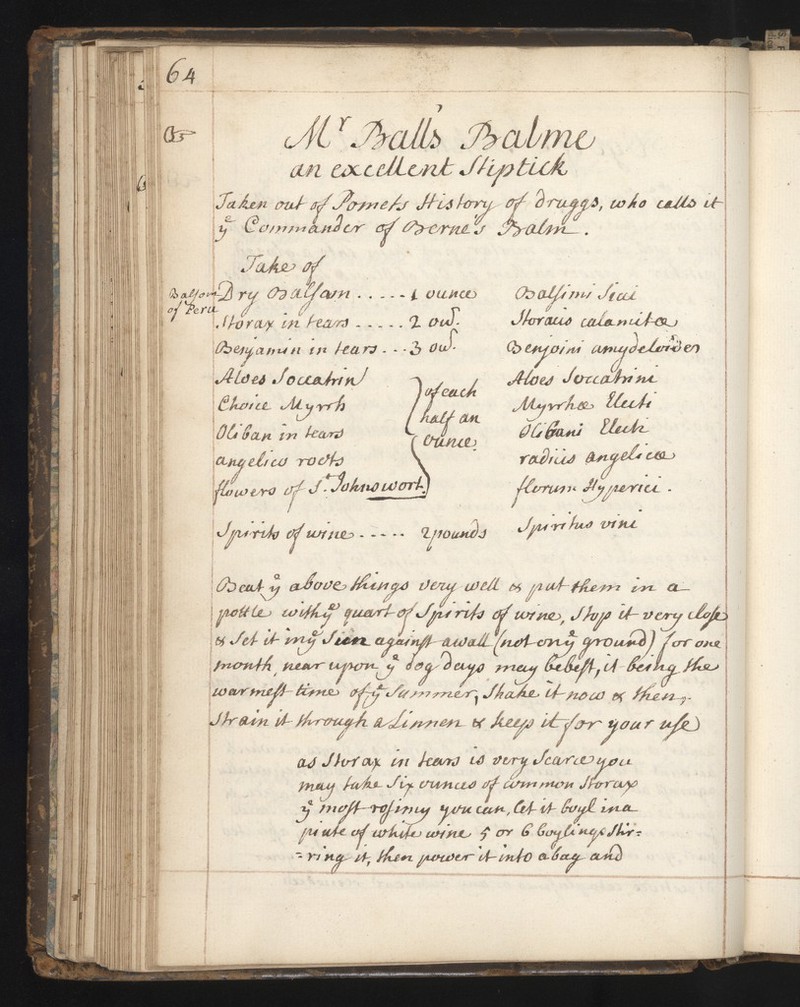 64
Mr Balls Balme
an excellent Stiptick
Taken out of Pomets History of druggs, who calls it
ye Commander of Berne's Balm.
Take of
Balsom
of Peru
Dry Balsam ..... 1 ounce Balsimi Sicci
Storax in tears ..... 2 ou. Storacis calamitæ
Benjamin in tears ... 3 ou. Benjoini amygdeloides
Aloes Soccatrin Aloes Soccatrini
of each
Choice Myrrh Myrrhæ Electi
half an
Oliban in tears Olibani Electi
ounce.
angelico roots radicis angelicæ
flowers of St. Johnswort. florum Hyperici.
Spirits of wine ..... 2 pounds Spiritus vini
Beat ye above things very well & put them in a
pottle with ye quart of Spirits of wine, Stop it very close
& Set it in ye Sun against a wall (not on ye ground) for one
month, near upon ye dog days may be best, it being the
warmest time of ye Summer, Shake it now & then,
Strain it through a Linnen & keep it for your use
as Storax in tears is very Scarce you
may take Six ounces of common Storax
ye most rosiny you can, let it boyl in a
pinte of white wine 5 or 6 boylings Stir=
=ring it, then power it into a bag and